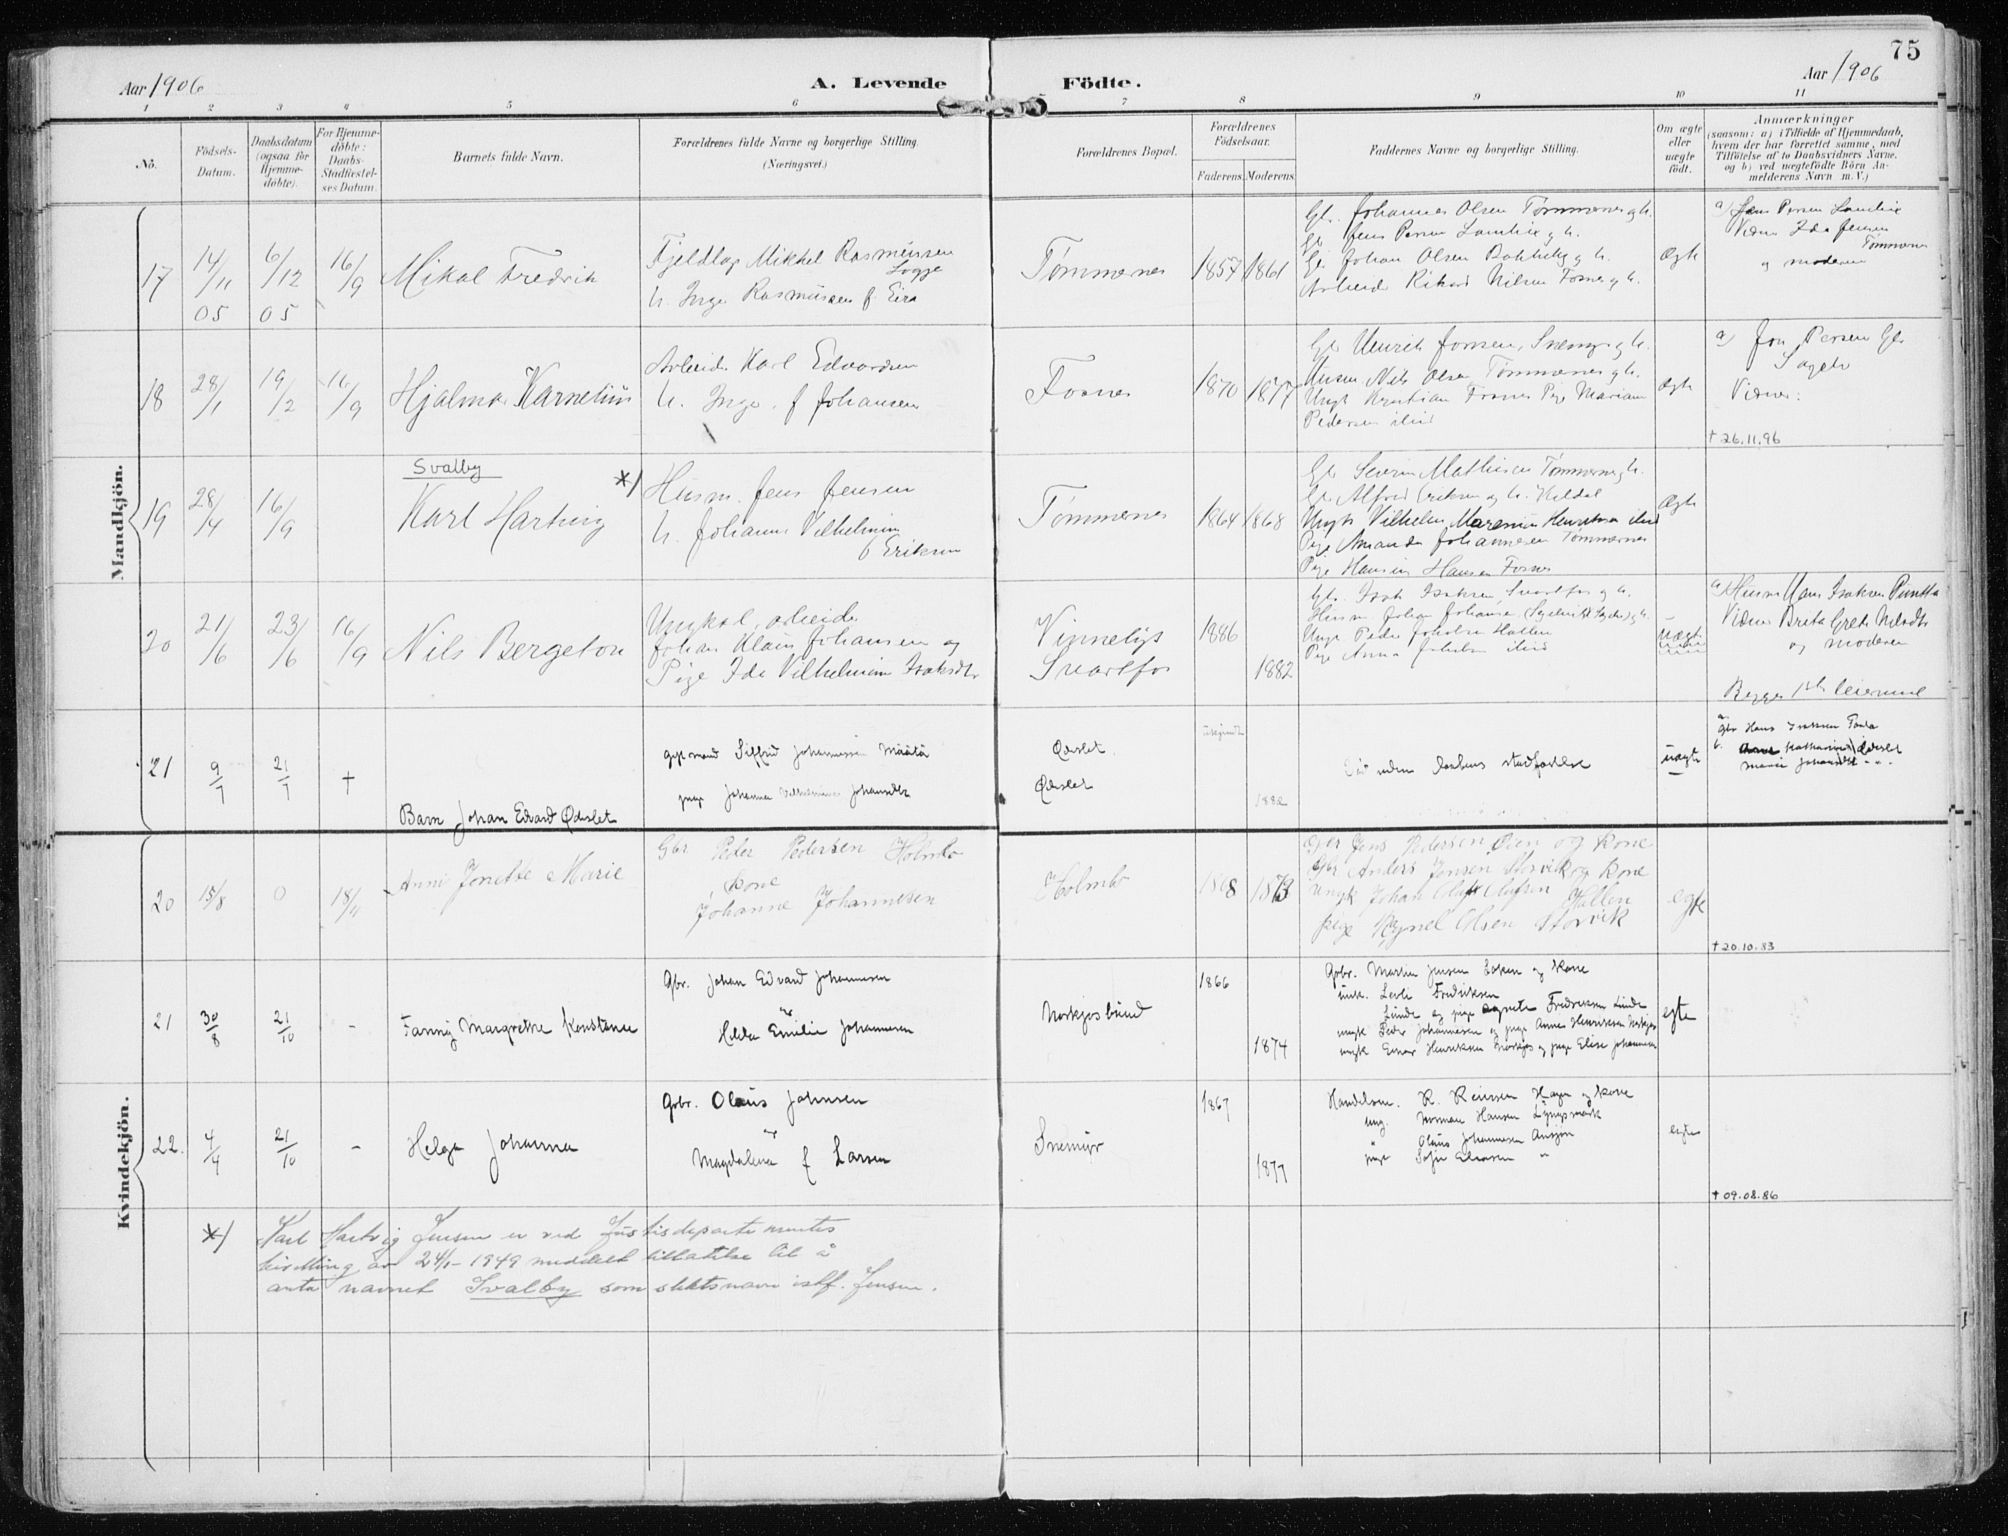 75
Aar 1906
A. Levende Födte.
Aar 1906
1 2 3 4 5 6 7 8 9 10 11
No.
Födsels-
Datum.
Daabsdatum
(ogsaa for
Hjemme-
döbte).
For Hjemme-
döbte:
Daabs-
Stadfæstel-
ses Datum.
Barnets fulde Navn.
Forældrenes fulde Navne og borgerlige Stilling.
(Næringsvei.)
Forældrenes Bopæl.
Forældrenes
Födselsaar.
Faderens. Moderens.
Faddernes Navne og borgerlige Stilling.
Om ægte
eller
uægte
födt.
Anmærkninger
(saasom: a) i Tilfælde af Hjemmedaab,
hvem der har forrettet samme, med
Tilföielse af to Daabsvidners Navne.
og b) ved uægtefödte Börn An-
melderens Navn m. V.)
Mandkjön.
17
14/11 05
6/12 05
16/9
Mikal Fredrik
Fjeldlap Mikkel Rasmussen
Logge
h. Inga Rasmussen f. Eira
Tømmernes
1857 1861
Gbr. Johannes Olsen Tømmernes og h.
Gb. Jens Persen
Gb. Johan Olsen
Arbeider Rikard Nilsen Fosnes og h.
Ægte
a) Jens Persen
Vidner Ida Jensen
Tømmernes
og moderen
18
28/1
19/2
16/9
Hjalmar Karnelius
Arbeider Karl Edvardsen
h. Inga f Johansen
Fosnes
1870 1877
Gb Henrik Jonsen, Snemyr og h.
Nils Olsen Tømmernes og h.
Ungk Kristian Fosnes Pige Mariam
Pedersen ibid
Ægte
a) Jon Persen Gbr
Vidner:
† 26.11.96
Svalby
19
28/4
16/9
Karl Hartvig
*)
Husm. Jens Jensen
h. Johanna Vilhelmine
f Eriksen
Tømmernes
1864 1868
Gb Severin Mathisen Tømmernes og h.
Gb Alfred Eriksen og h. Kildal
Ungk Vilhelm Marenius Henriksen ibid
Pige Amanda Johannesen Tømmernes
Pige Hansine Hansen Fosnes
Ægte
20
21/6
23/6
16/9
Nils Bergeton
Ungkal, arbeider
Johan Klaus Johansen og
Pige Ida Vilhelmine Isaksdtr
Vinnelys
Svartfos
1886
1882
Gb. Isak Isaksen Svartfos og h.
Husm. Johan Johansen og h.
Ungk Peder Jakobsen Hallen
Pige Anna Jakobsen ibid
Uægte
a) Husm Hans Isaksen Puntta
Vidner Brita Grete Nilsdtr
og moderen
Begges 1ste leiermaal
21
9/7
21/7
†
Barn Johan Edvard Ødeslet
gift mand Sigfrid Johannessen Määtä
pige Johanna Vilhelmina Johansdtr
Ødeslet.
Ødeslet
1882
Død uden daabens stadfæstelse
uægte
a. Gbr Hans Isaksen Punta
b. Anna Katharina Ødeslet
Maria Johansdtr - " -
Kvindekjön.
20
15/8
0
18/11
Anni Jonette Marie
Gbr Peder Pedersen Holmbo
kone
Johanne Johannesen
Holmbo
1868 1873
Gbr Jens Pedersen Øien og kone
Gbr Anders Jensen Storvik og kone
ungk Johan Olaf Olufsen Hallen
pige Olsen Storvik
egte
† 20.10.83
21
30/8
21/10
-
Fanny Margrethe Konstanse
Gbr. Johan Edvard Johannesen
Hilda Emilie Johannesen
Norkjosbund
1866
1874
Gbr. Martin Jensen og kone
unk. Levli Fredriksen
Lunde og pige Agnete Fredriksen Lunde
ungk Peder Johannesen og pige Anna Henriksen Norkjos
ungk Einar Henriksen Norkjos og pige Elise Johannesen
egte
22.
4/9
21/10
-
Helga Johanna
Gbr. Olaus Johnsen
Magdalena f Larsen
Snemyr
1867
1877
Handelsm. R. Reiersen Hagen og kone
ung. Norman Hansen Lyngsmark
" Olaus Johannesen
pige Sofie Eliasen "
egte
† 09.08.86
*) Karl Hartvig Jensen er ved Justisdepartementets
bevilling av 24/1-1949 meddelt tillatelse til å
anta navnet Svalby som slektsnavn istf. Jensen.